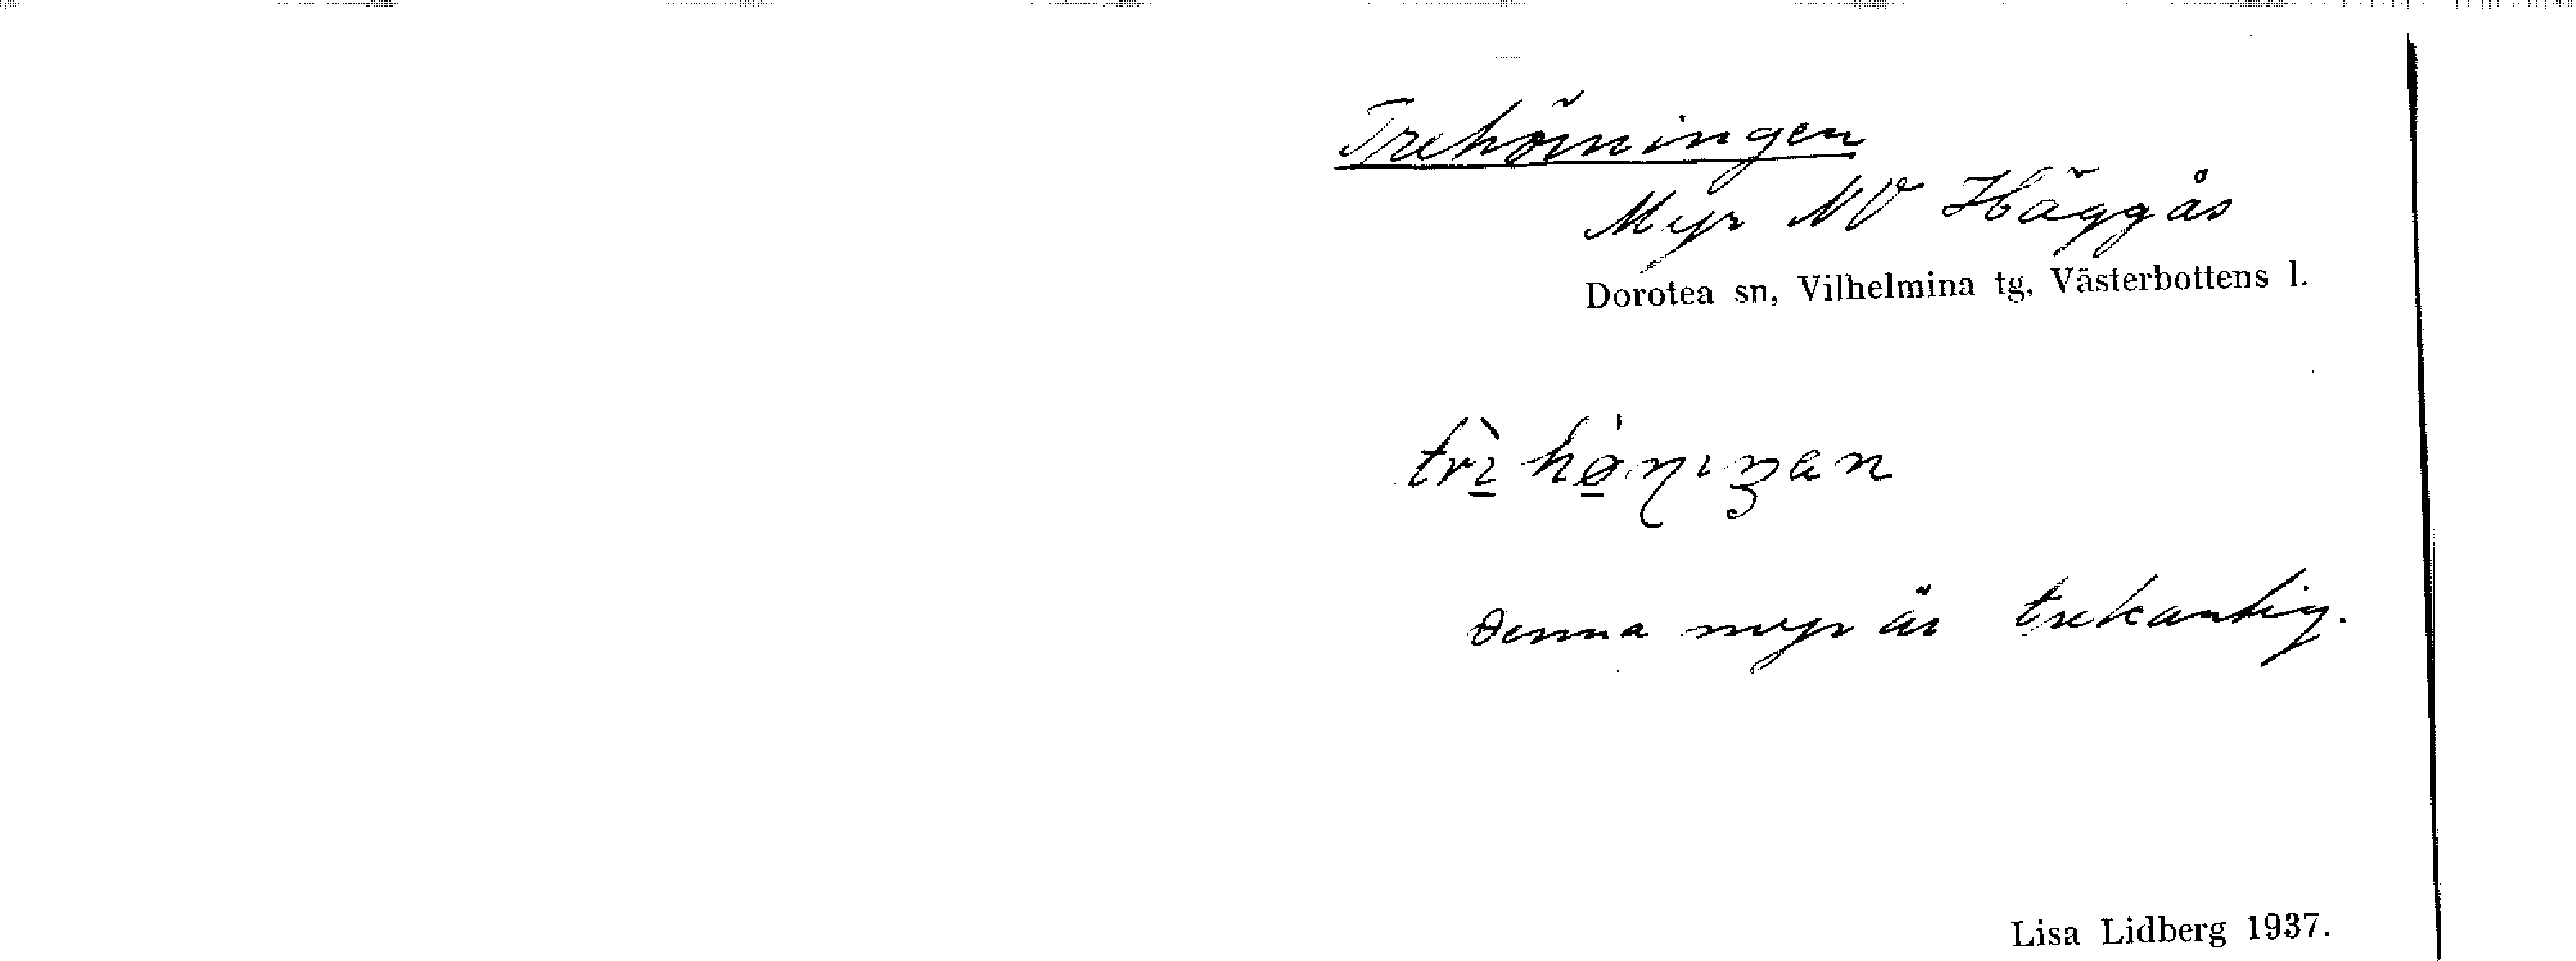 Trehörningen
Myr NV Häggås
Dorotea sn, Vilhelmina tg, Västerbottens l.
trı̀ hø̍ɳıŋan
Denna myr är trekantig.
Lisa Lidberg 1937.